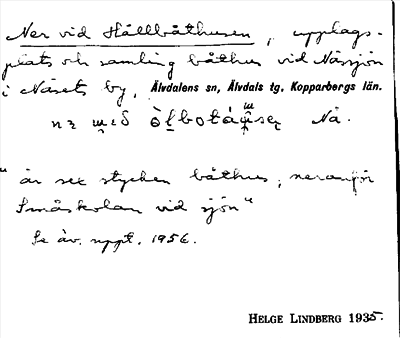 Ner vid Hållbåthusen, upplags-
plats och samling båthus vid Nässjön
i Näsets by, Älvdalens sn, Älvdals tg. Kopparbergs län.
Nä.
"är sex stycken båthus, neranför
Småskolan vid sjön"
Se äv. uppt. 1956.
HELGE LINDBERG 1935.